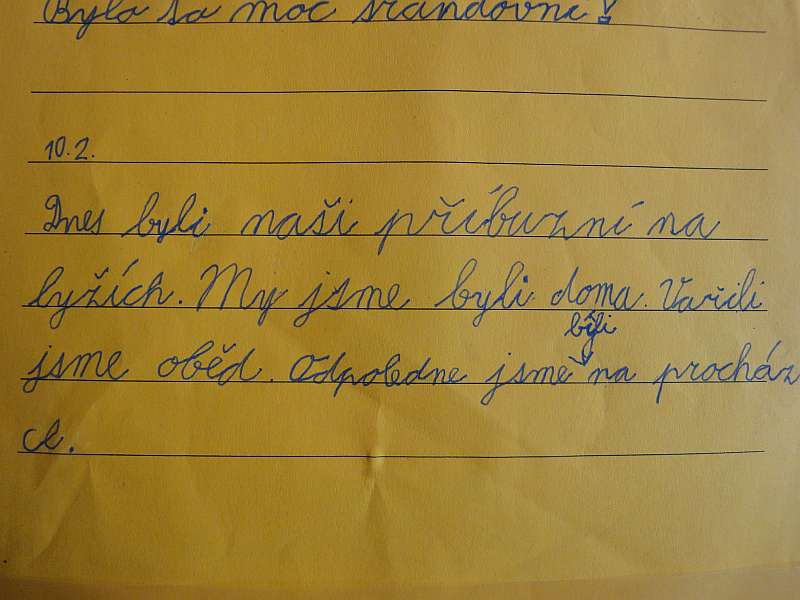 Byla sa moc srandovní!
10.2.
Dnes byli naši příbuzní na
lyžích. My jsme byli doma. Vařili
byli
jsme oběd. Odpoledne jsme na procház
ce.